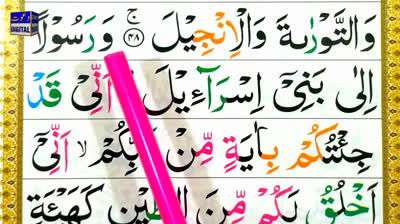 وَالتَّوْرٰىةَ وَالْاِنْجِيْلَ ۚ ﴿۴۸﴾ وَرَسُوْلًا
اِلٰى بَنِىْٓ اِسْرَآءِيْلَ اَنِّىْ قَدْ
جِئْتُكُمْ بِاٰيَةٍ مِّنْ رَّبِّكُمْ ۙ اَنِّىْٓ
اَخْلُقُ لَكُمْ مِّنَ الطِّيْنِ كَهَيْـَٔةِ
DIGITAL